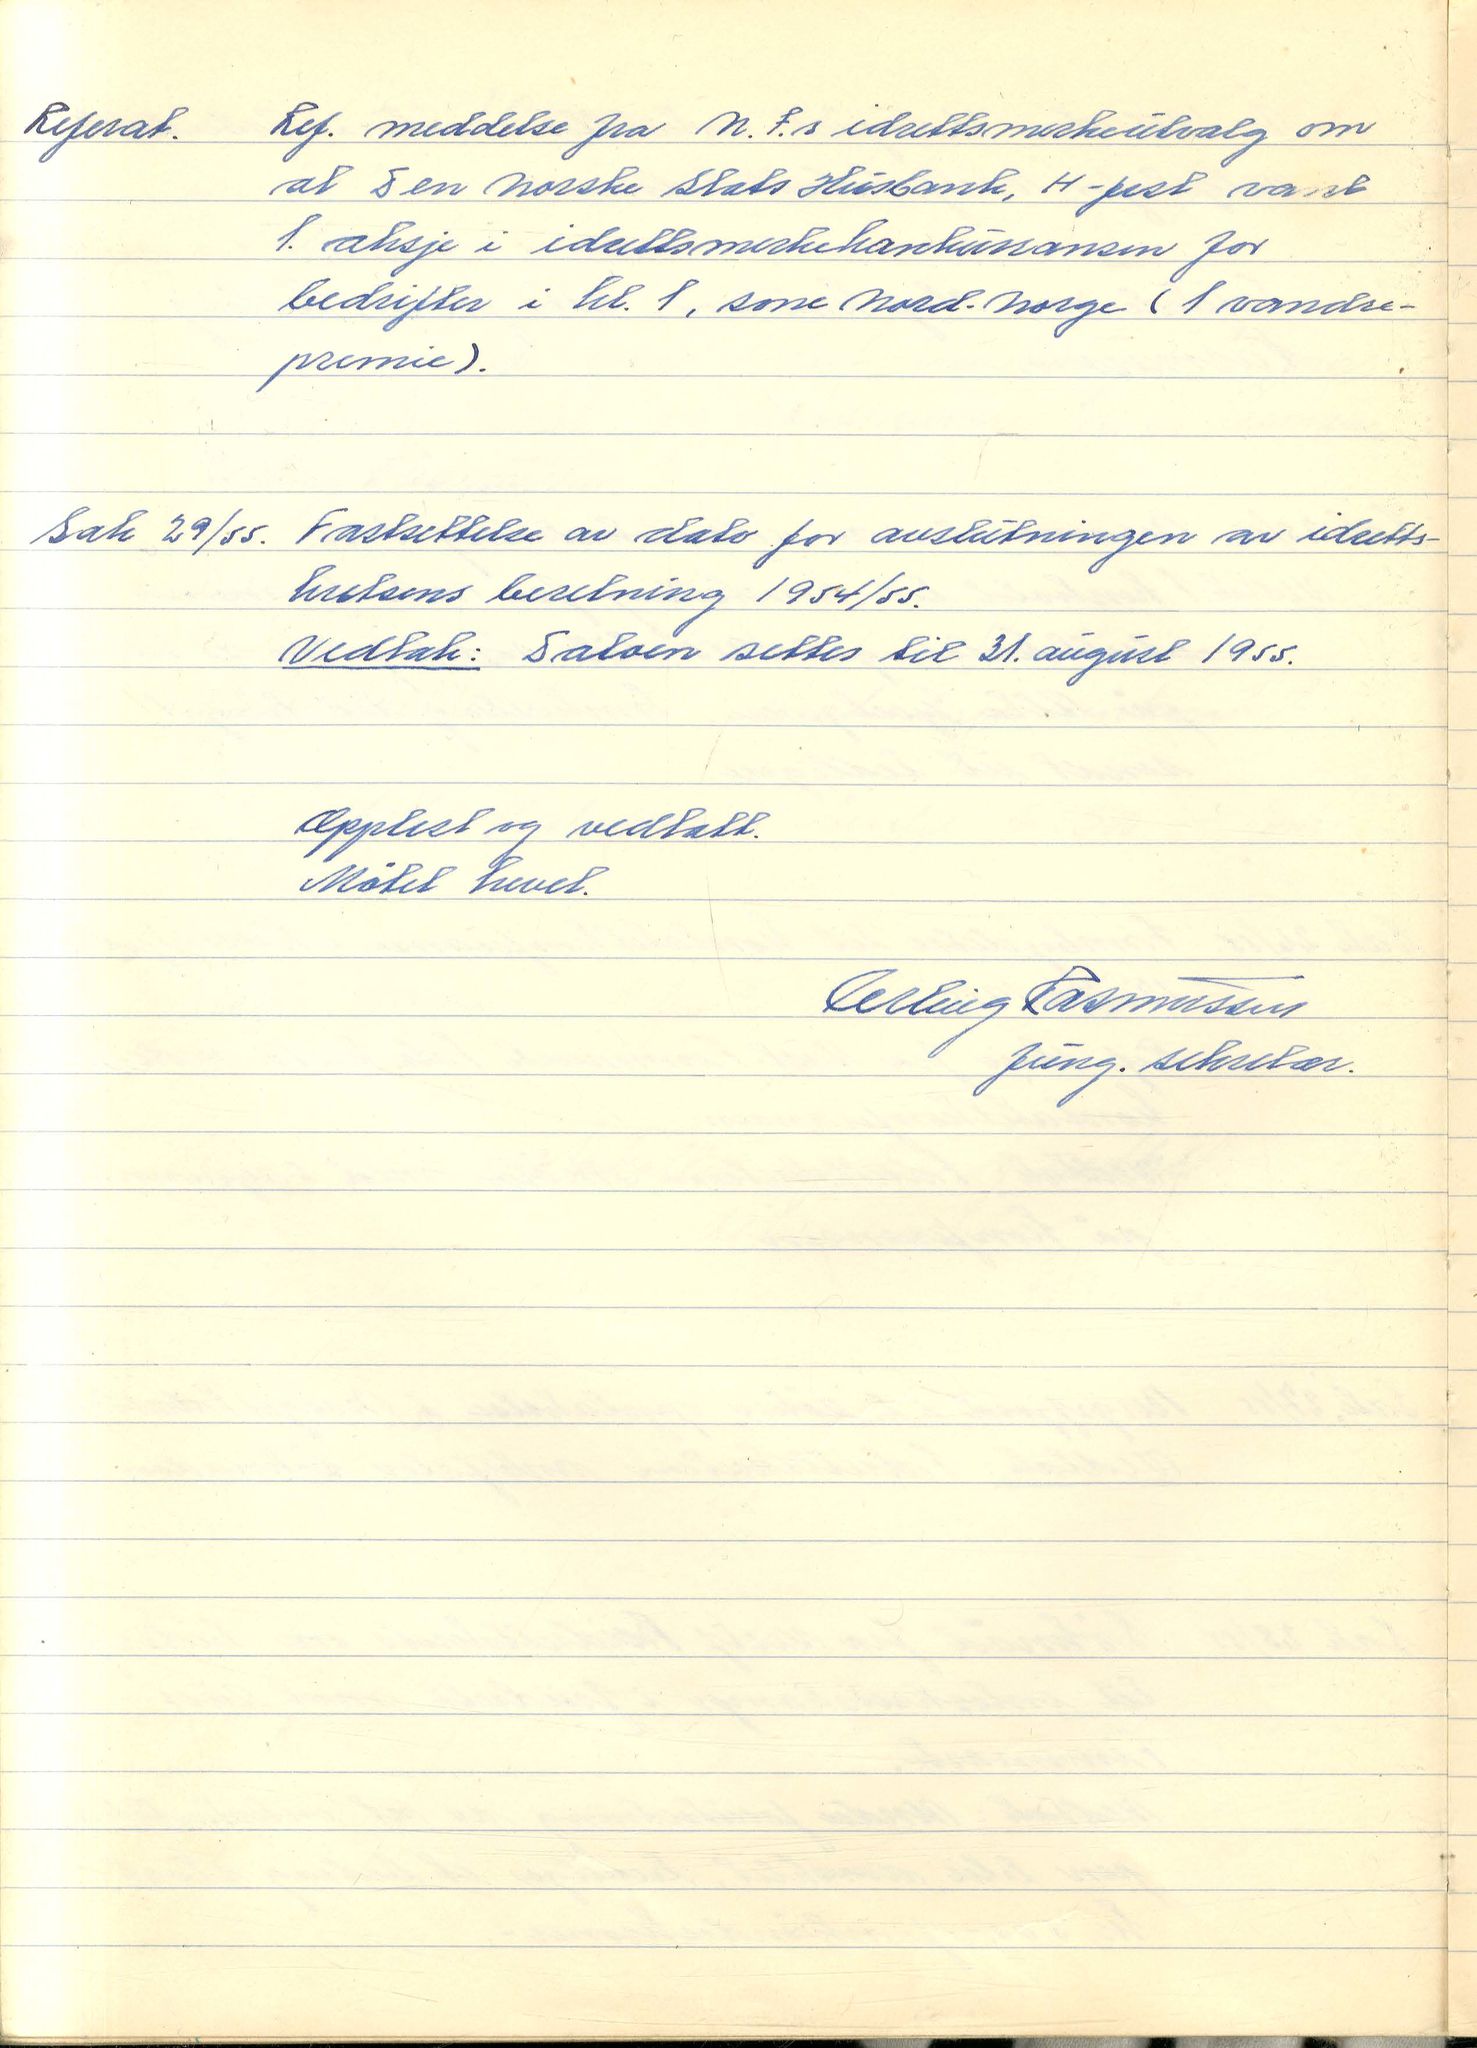 Referat. Ref. meddelse fra N.I.s idrettsmerkeutvalg om
at Den Norske Stats Husbank, H-fest vant
1. aksje i idrettsmerkekonkurransen for
bedrifter i kl. 1, sone Nord-Norge (1 vandre-
premie).
Sak 29/55. Fastsettelse av dato for avslutningen av idretts-
kretsens beretning 1954/55.
Vedtak: Datoen settes til 31. august 1955.
Opplest og vedtatt.
Møtet hevet.
Erling Rasmussen
fung. sekretær.